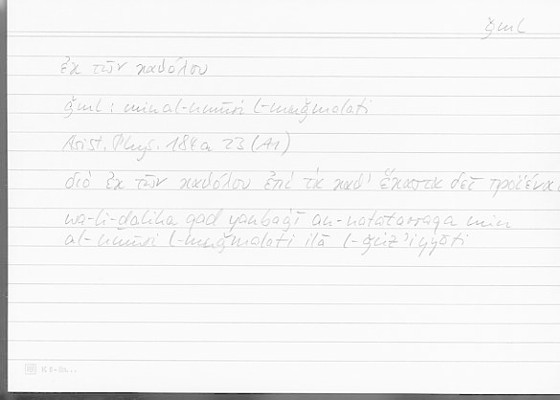 ǧml
ἐκ τῶν καθόλου
ǧml : min al-umūri l-muǧmalati
Arist. Phys. 184 a 23 (A1)
διὸ ἐκ τῶν καθόλου ἐπὶ τὰ καθ' ἕκαστα δεῖ προϊέναι
wa-li-ḏālika qad yanbaġī an natatarraqa min
al-umūri l-muǧmalati ilā l-ǧuz'iyyāti